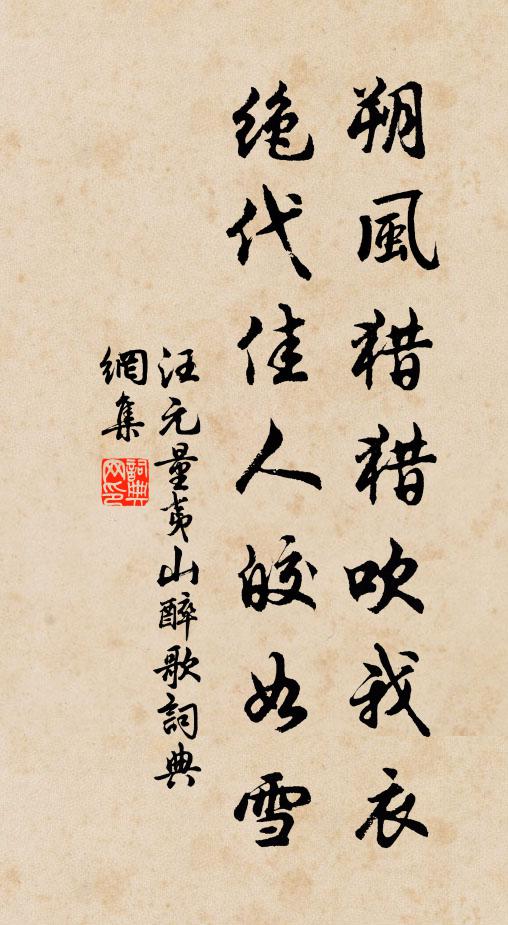 朔風猎猎吹我衣
絶代佳人皎如雪
汪元量夷山醉歌詞典
網集
詞典网印